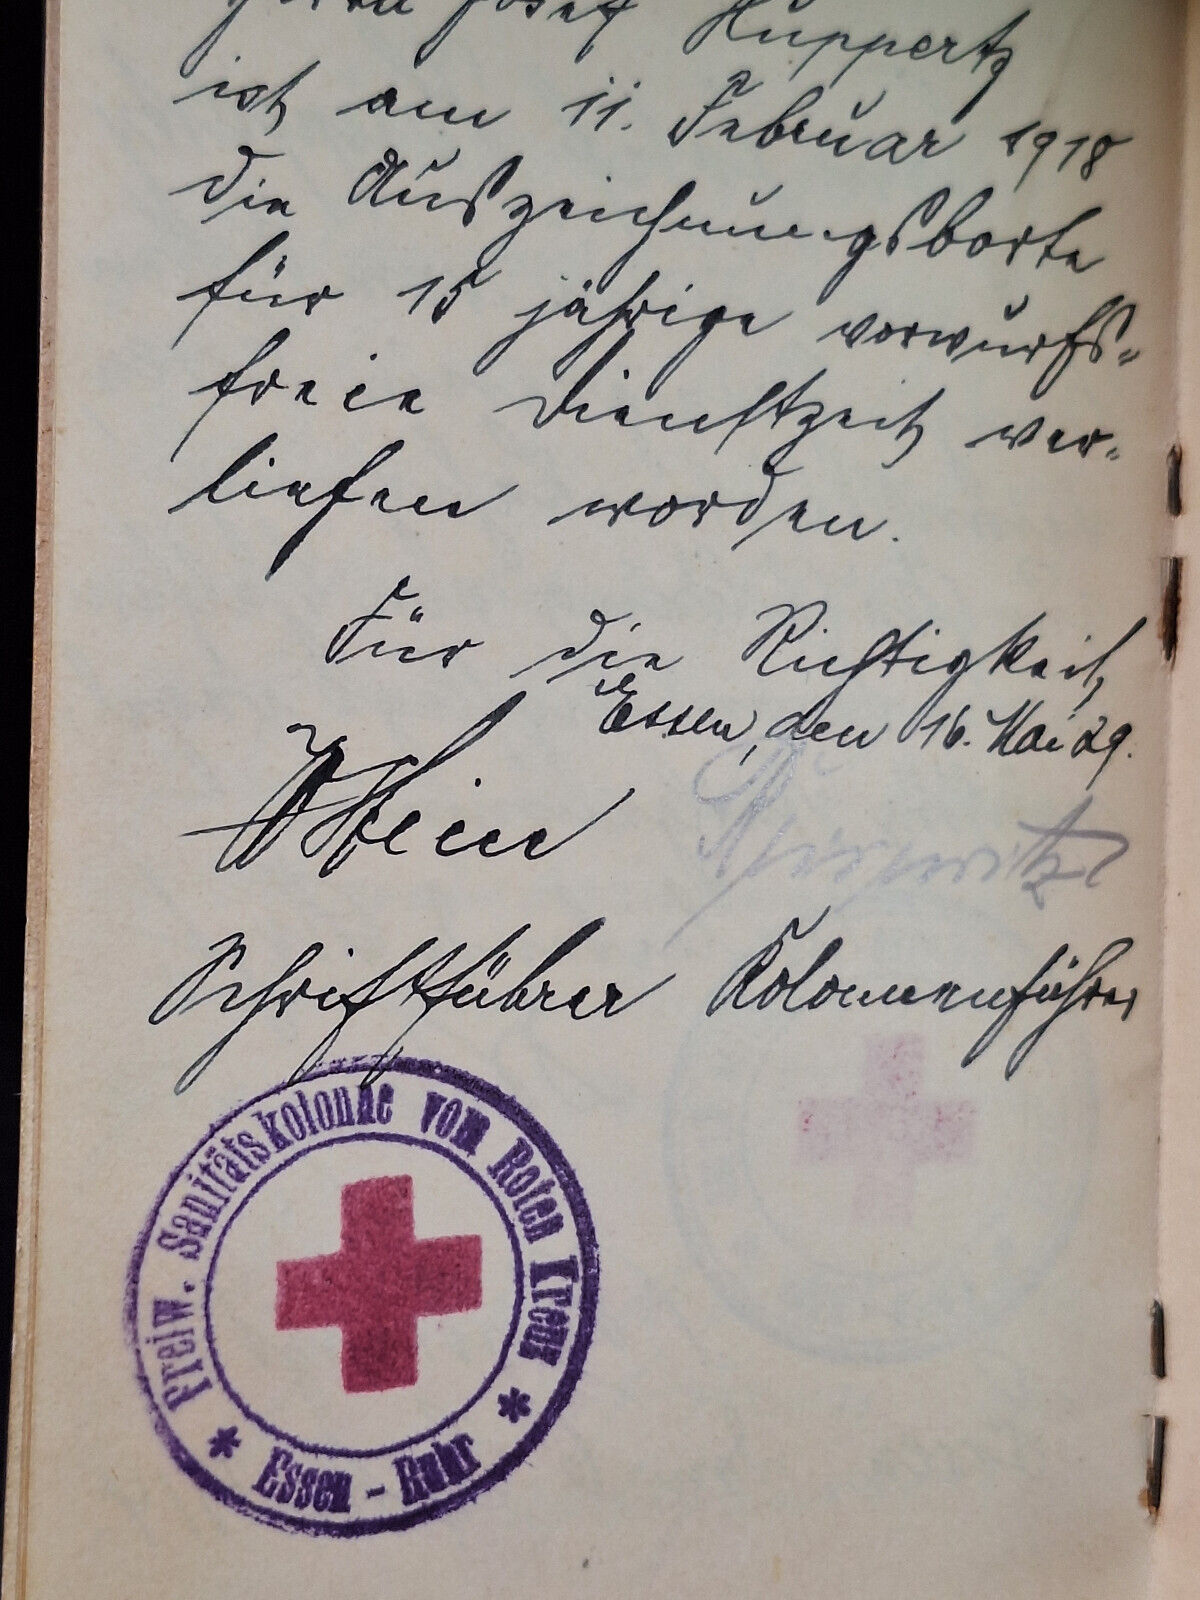 Herrn Josef Huppertz
ist am 11. Februar 1918
die Auszeichnungsborte
für 15 jährige vorwurfs-
freie Dienstzeit ver-
liehen worden.
Für die Richtigkeit,
Essen, den 16. Mai 29.
Schriftführer Kolonnenführer
Freiw. Sanitätskolonne vom Roten Kreuz
* Essen - Ruhr *